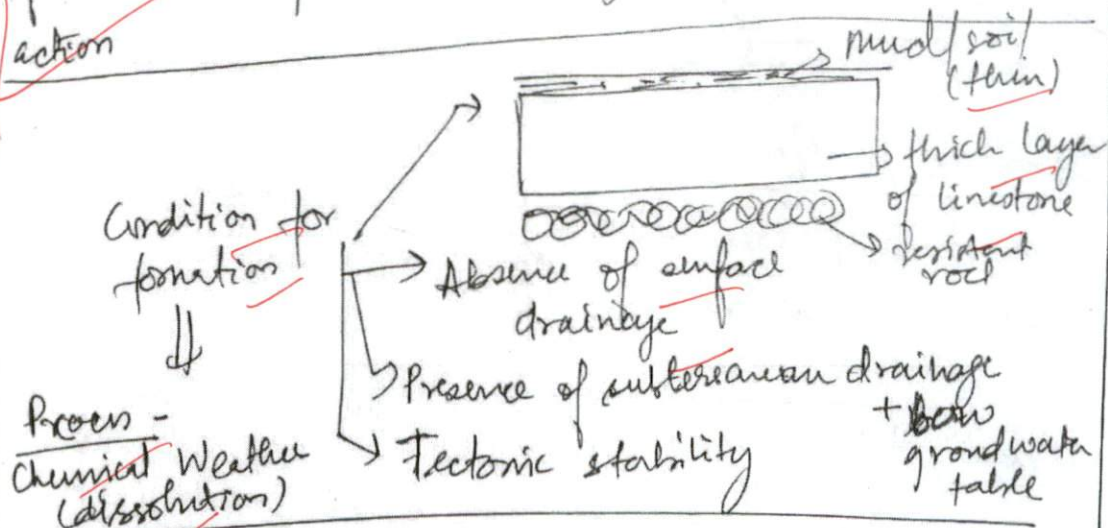 action
mud/soil
(thin)
thick layer
of limestone
resistant
rock
Condition for
formation
Absence of surface
drainage
Presence of subterranean drainage
+ low
groundwater
table
Tectonic stability
Process -
Chemical Weather
(dissolution)